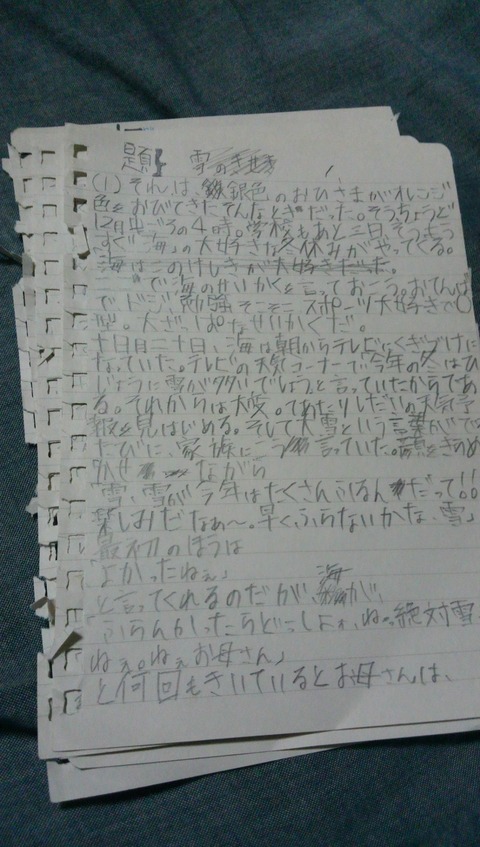 題 雪のき
(1) それは、銀色のおひさまがオレンジ
色をおびてきたてんなときだった。そうちょうど
12月中ごろの4時。学校もあと三日、そうもう
すぐ「海」の大好きな冬休みがやってくる。
海はこのけしきが大好きだった。
ここで海のせいかくを言っておこう。おてんば
で、ドジ、勉強そこそこスポーツ大好きでO
型。大ざっぱなせいかくだ。
十日、海は朝からテレビにくぎづけに
なっていた。テレビの天気コーナーで今年の冬はひ
じょうに雪が多いでしょうと言っていたからであ
る。それからは大変。てあたりしだいの天気予
報を見はじめる。そして大雪という言葉がでる
たびに、家族にこう言っていた。をきらめ
かせながら
「雪、雪が今年はたくさんふるんだって!!
楽しみだなぁ〜。早くふらないかな、雪」
最初のほうは
「よかったねぇ」
と言ってくれるのだが、海が、
「ふらんかったらどーしよぉ、ねぇ絶対雪
ねぇ。ねぇお母さん」
と何回もきいているとお母さんは、